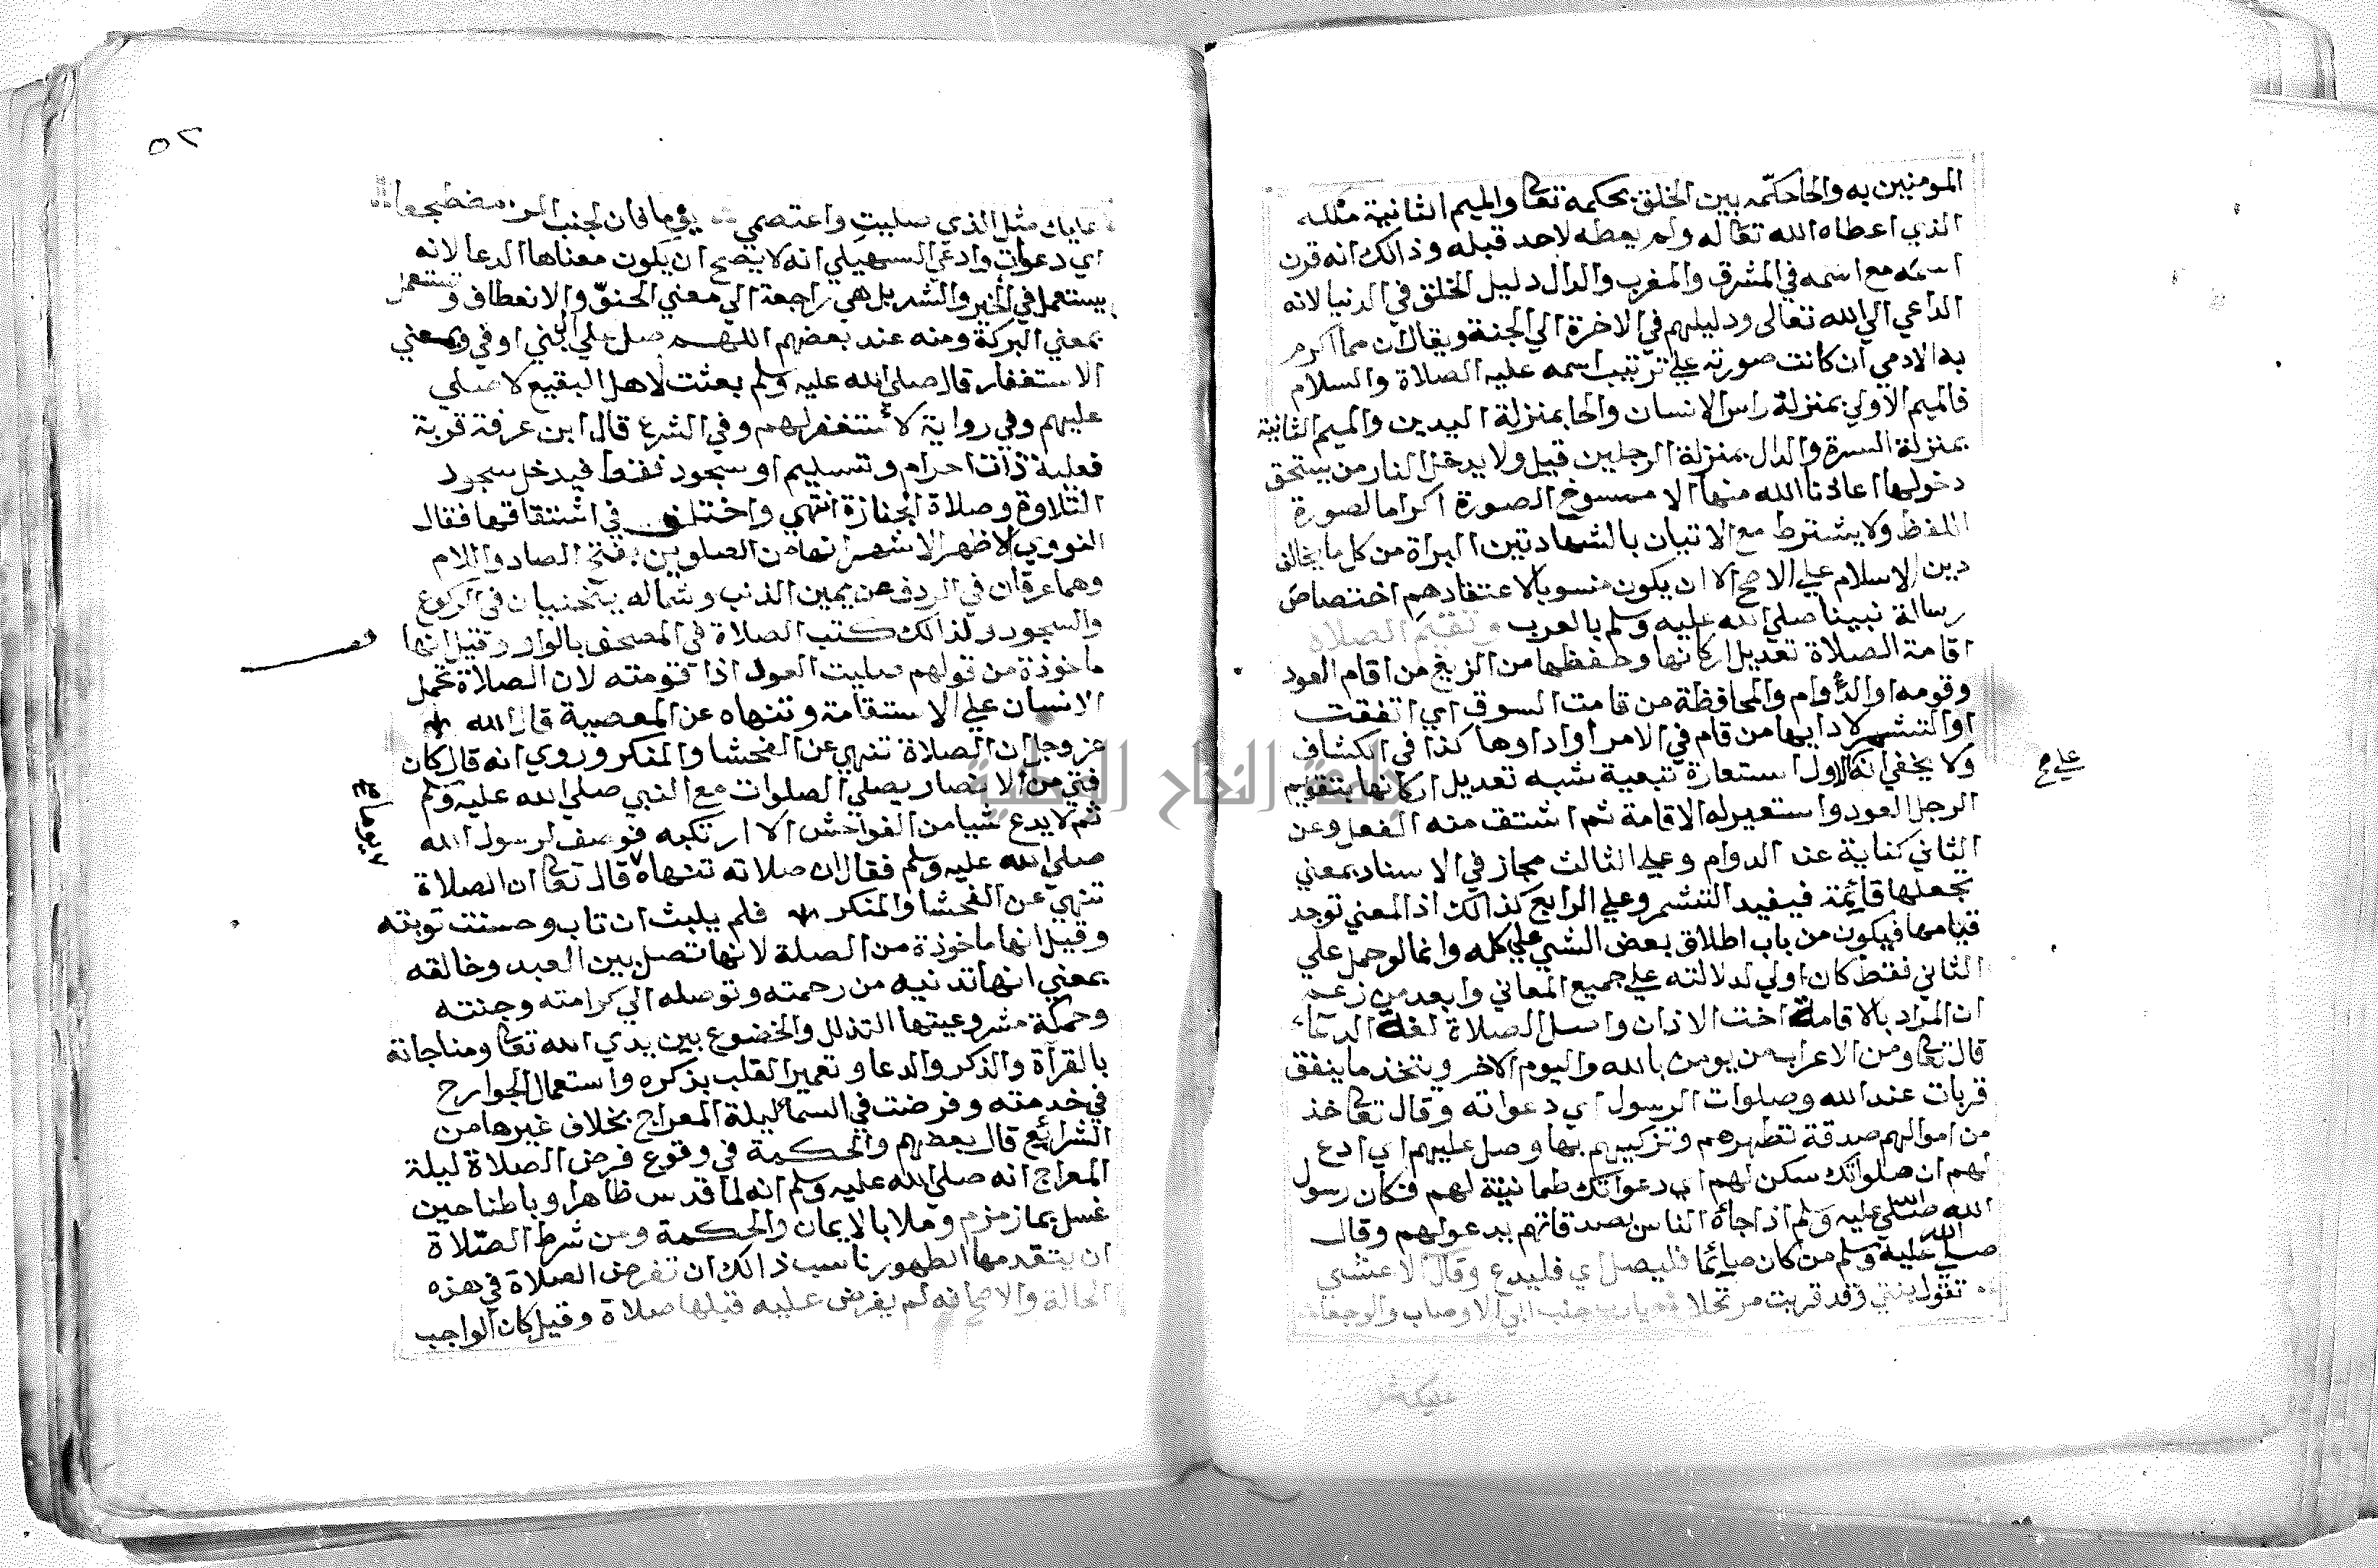 المومنين به والحا حكمه بين الخلق بحكمه تعا والميم الثانية ملكه
الذي اعطاه الله تعا له ولم يعطه لاحد قبله وذالك انه قرن
اسمه مع اسمه في المشرق والمغرب والدال دليل الخلق في الدنيا لانه
الداعي الي الله تعالى ودليلهم في الاخرة الي الجنة ويقال ان مما اكرم
به الادمي ان كانت صورته علي ترتيب اسمه عليه الصلاة والسلام
فالميم الاولي بمنزلة راس الانسان والحا بمنزلة اليدين والميم الثانية
بمنزلة السرة والدال بمنزلة الرجلين قيل ولا يدخل النار من يستحق
دخولها اعاذنا الله منها الا ممسوخ الصورة اكراما لصورة
اللفظ ولا يشترط مع الاتيان بالشهادتين البراة من كل ما يخالف
دين الاسلام علي الاصح الا ان يكون منسوبا لاعتقادهم اختصاص
رسالة نبينا صلي الله عليه وسلم بالعرب وتقيم الصلاة
اقامة الصلاة تعديل اركانها وحفظها من الزيغ من اقام العود
وقومه او الدوام والمحافظة من قامت السوق اي اتفقت
او التشمر لادايها من قام في الامر او اداوها كذا في الكشاف
ولا يخفي انه الاول استعارة تبعية شبه تعديل اركانها بتقويم
علي م
الرجل العود واستعير له الاقامة ثم اشتق منه الفعل وعن
الثاني كناية عن الدوام وعلي الثالث مجاز في الاسناد بمعني
يجعلها قائمة فيفيد التشمر وعلي الرابع كذالك اذ المعني توجد
قيامها فيكون من باب اطلاق بعض الشي علي كله وانما لو حمل علي
الثاني فقط كان اولي لدلالته علي جميع المعاني وابعد من زعم
ان المراد بالاقامة اخت الاذان واصل الصلاة لغة الدعاء
قال تعا ومن الاعراب من يومن بالله واليوم الاخر ويتخذ ما ينفق
قربات عند الله وصلوات الرسول اي دعواته وقال تعا خذ
من اموالهم صدقة تطهرهم وتزكيهم بها وصل عليهم اي ادع
لهم ان صلواتك سكن لهم اي دعواتك طمانينة لهم فكان رسول
الله صلي الله عليه وسلم اذا جاه الناس بصدقاتهم يدعو لهم وقال
صلي الله عليه وسلم من كان صائما فليصل اي فليدع وقال الاعشي
تقول بنتي وقد قربت مرتحلا يارب جنب ابي الاوصاب والوجعا
عليك مثل
٥٢
عليك مثل الذي صليت واعتصمي فان لجنب المرء مضطجعا
اي دعوات وادعي السهيلي انه لا يصح ان يكون معناها الدعا لانه
يستعمل في الخير والشر بل هي راجعة الي معني الحنو والانعطاف وتستعمل
بمعني البركة ومنه عند بعضهم اللهم صل علي ال بني اوفي وبمعني
الاستغفار قال صلي الله عليه وسلم بعثت لاهل البقيع لاصلي
عليهم وفي رواية لاستغفر لهم وفي الشرع قال ابن عرفة قربة
فعلية ذات احرام وتسليم او سجود فقط فيدخل سجود
التلاوة وصلاة الجنازة انتهي واختلف في اشتقاقها فقال
النووي الاظهر الاشهر انها من الصلوين بفتح الصاد واللام
وهما عرقان في الردف عن يمين الذنب وشماله ينحنيان في الركوع
والسجود ولذالك كتب الصلاة في المصحف بالواو وقيل انها
ماخوذة من قولهم صليت العود اذا قومته لان الصلاة تحمل
الانسان علي الاستقامة وتنهاه عن المعصية قال الله
عز وجل ان الصلاة تنهي عن الفحشا والمنكر وروي انه قال كان
فتي من الانصار يصلي الصلوات مع النبي صلي الله عليه وسلم
ثم لا يدع شيا من الفواحش الا ارتكبه فوصف لرسول الله
صلي الله عليه وسلم فقال ان صلاته تنهاه قال تعا ان الصلاة
يوما ع
تنهي عن الفحشا والمنكر فلم يلبث ان تاب وحسنت توبته
وقيل انها ماخوذة من الصلة لانها تصل بين العبد وخالقه
بمعني انها تدنيه من رحمته وتوصله الي كرامته وجنته
وحمكة مشروعيتها التذلل والخضوع بين يدي الله تعا ومناجاته
بالقرآة والذكر والدعا وتعمير القلب بذكره واستعمال الجوارح
في خدمته وفرضت في السما ليلة المعراج بخلاف غيرها من
الشرائع قال بعضهم والحكمة في وقوع فرض الصلاة ليلة
المعراج انه صلي الله عليه وسلم انه لما قدس ظاهرا وباطنا حين
غسل بماء زمزم وملا بالايمان والحكمة ومن شرط الصلاة
ان يتقدمها الطهور ناسب ذالك ان تفرض الصلاة في هذه
الحالة والاصح انه لم يفرض عليه قبلها صلاة وقيل كان الواجب